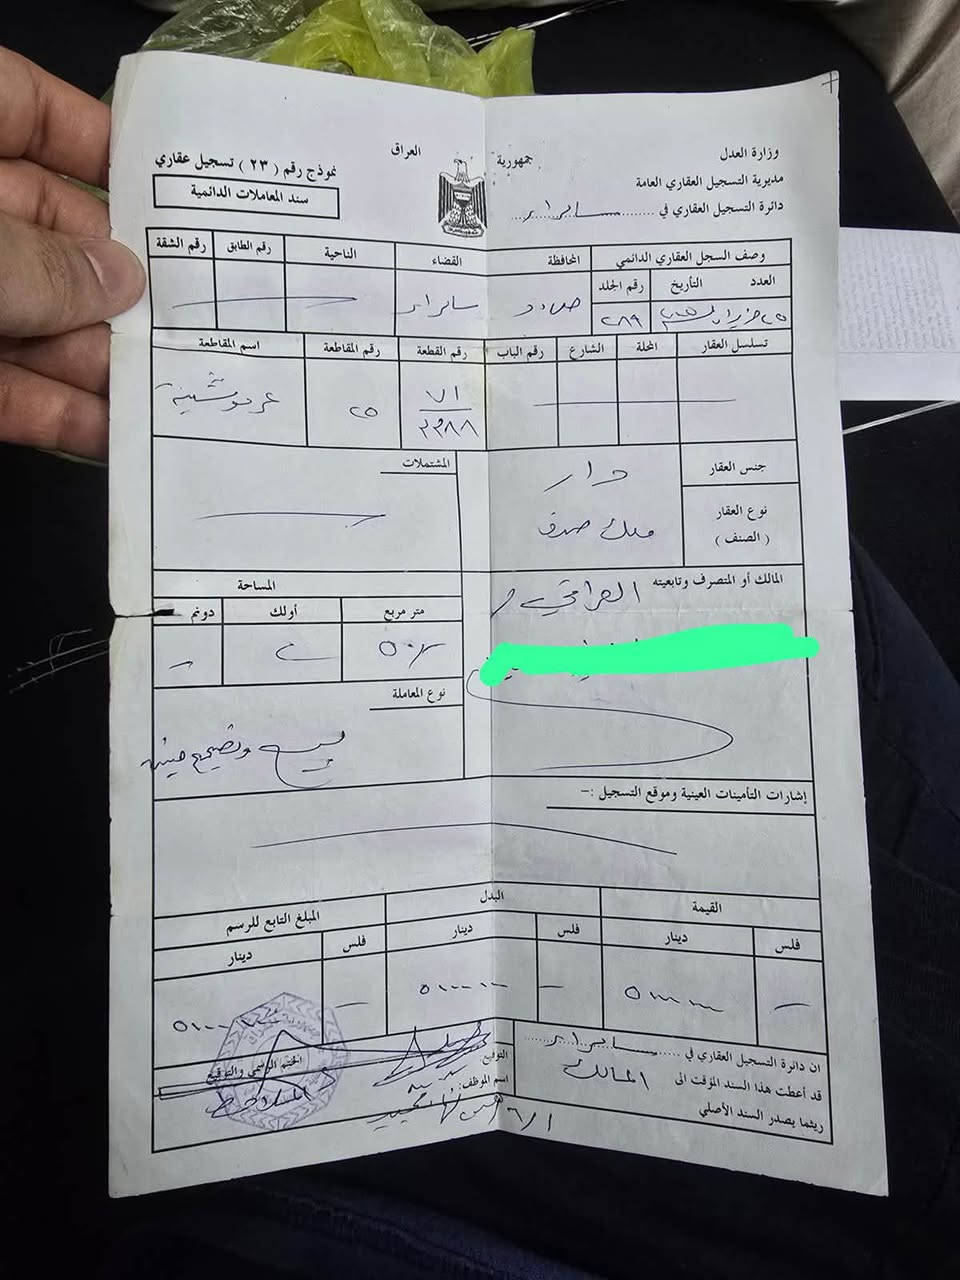 وزارة العدل
مديرية التسجيل العقاري العامة
دائرة التسجيل العقاري في سامراء
جمهورية العراق
نموذج رقم ( ٢٣ ) تسجيل عقاري
سند المعاملات الدائمية
وصف السجل العقاري الدائمي
المحافظة
القضاء
الناحية
رقم الطابق
رقم الشقة
العدد
التأريخ
رقم الجلد
حزيران
٢٨٩
سامراء
تسلسل العقار
المحلة
الشارع
رقم الباب
رقم القطعة
رقم المقاطعة
اسم المقاطعة
٧١
٢٥
جنس العقار
دار
نوع العقار
( الصنف )
ملك صرف
المشتملات
المالك أو المتصرف وتابعيته
العراقي
المساحة
متر مربع
أولك
دونم
نوع المعاملة
بيع وتصحيح جنس
إشارات التأمينات العينية وموقع التسجيل :-
القيمة
البدل
المبلغ التابع للرسم
فلس
دينار
فلس
دينار
فلس
دينار
ان دائرة التسجيل العقاري في سامراء
قد أعطت هذا السند المؤقت الى المالك
ريثما يصدر السند الأصلي
التوقيع:
اسم الموظف:
الختم الرسمي والتوقيع